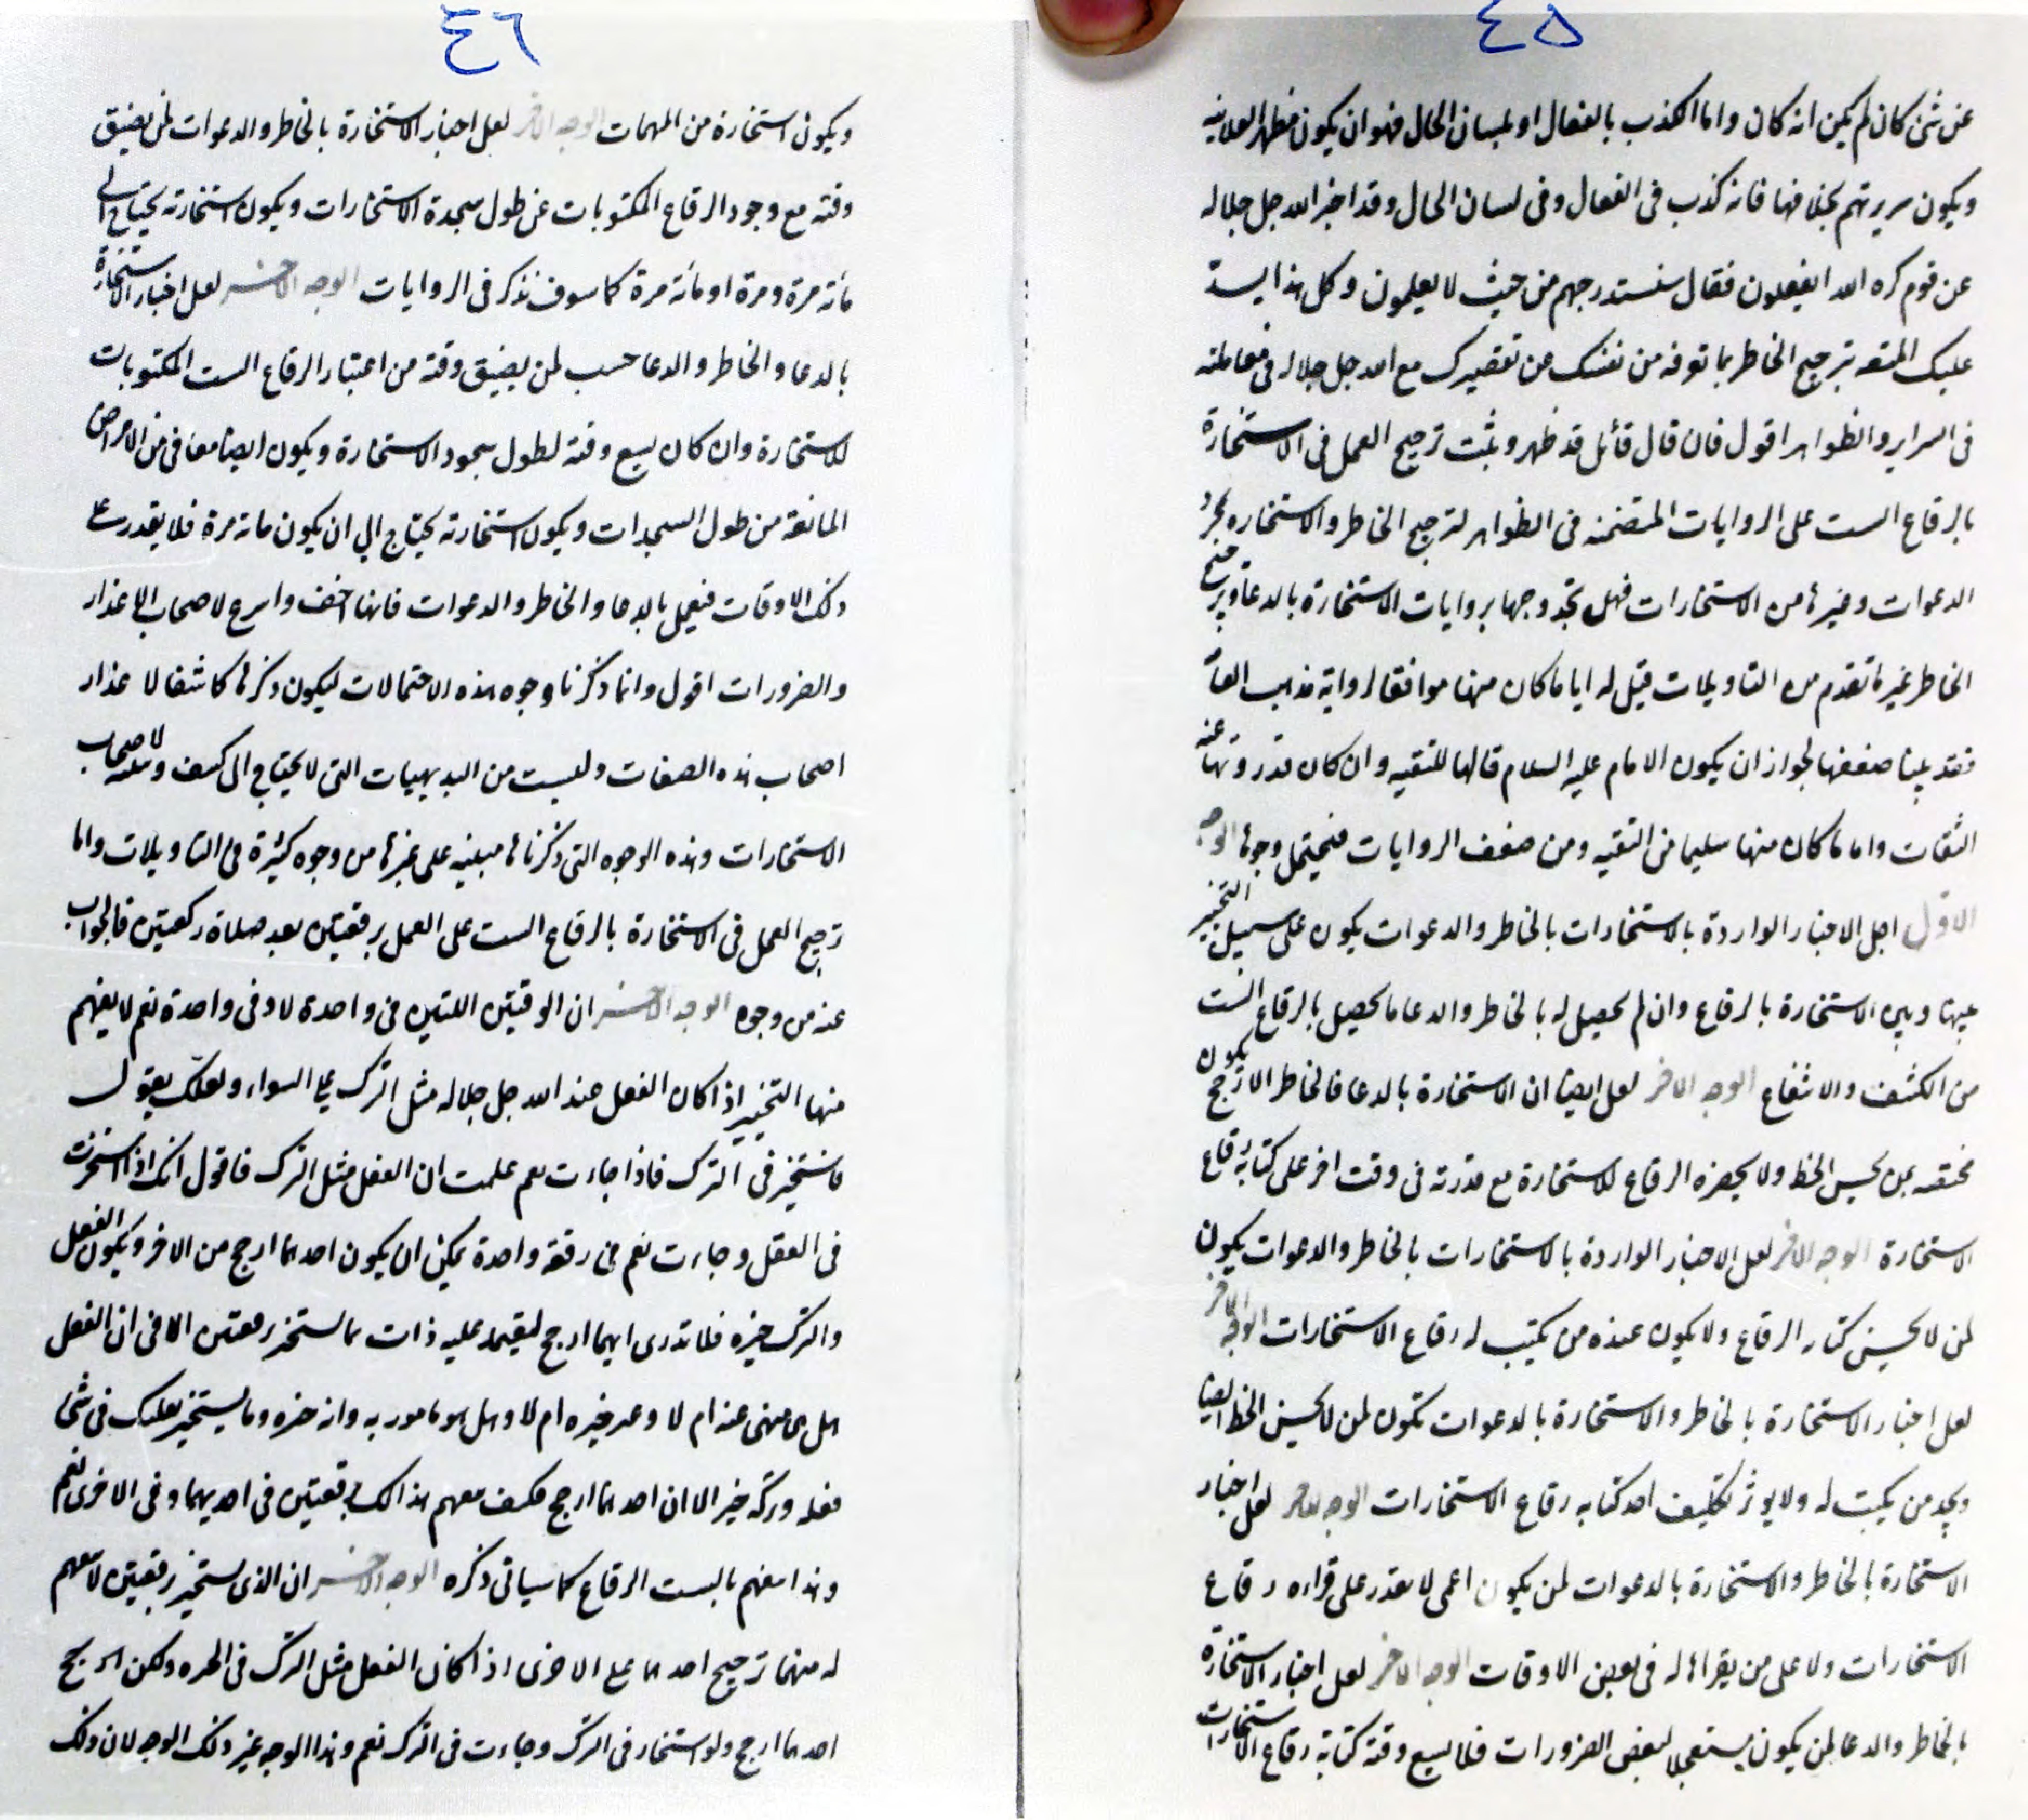 ٤٥
عن شئ كان لم يكن انه كان واما الكذب بالفعال او بلسان الحال فهو ان يكون مظهر العلانيه
ويكون سريرتهم بخلافها فانه كذب فى الفعال وفى لسان الحال وقد اخبر الله جل جلاله
عن قوم كره الله ايفعلون فقال سنستدرجهم من حيث لا يعلمون وكل هذا يسد
عليك المتعه بترجيح الخاطر بما توفه من نفسك عن تقصيرك مع الله جل جلاله فى معاملته
فى السراير والظواهر اقول فان قال قائل قد ظهر وثبت ترجيح العمل فى الاستخارة
بالرقاع الست على الروايات المتضمنه فى الظواهر لترجيح الخاطر والاستخاره بمجرد
الدعوات وغيرها من الاستخارات فهل تجد وجها بروايات الاستخارة بالدعا وبترجيح
الخاطر غير ما تقدم من التاويلات قيل له اياما كان منها موافقا لرواية مذهب العا
فقد بينا ضعفها لجواز ان يكون الامام عليه السلام قالها للتقيه وان كان قد روتها عنه
الثقات واما ما كان منها سليما من التقيه ومن ضعف الروايات فيحتمل وجوها الوجه
الاول اجل الاخبار الواردة بالاستخارات بالخاطر والدعوات يكون على سبيل التخيير
بينها وبين الاستخارة بالرقاع وان لم يحصل له بالخاطر والدعا ما يحصل بالرقاع الست
من الكشف والاشفاع الوجه الاخر لعل ايضا ان الاستخارة بالدعا فالخاطر الارجح يكون
مختصه بمن يحسن الخط ولا يحضره الرقاع للاستخارة مع قدرته فى وقت اخر على كتابة رقاع
الاستخارة الوجه الاخر لعل الاخبار الواردة بالاستخارات بالخاطر والدعوات يكون
لمن لا يحسن كتار الرقاع ولا يكون عنده من يكتب له رقاع الاستخارات الوجه الاخر
لعل اخبار الاستخارة بالخاطر والاستخارة بالدعوات تكون لمن لا يحسن الخط ايضا
ويجد من يكتب له ولا يوثر تكليف احد كتابه رقاع الاستخارات الوجه الاخر لعل اخبار
الاستخارة بالخاطر والاستخارة بالدعوات لمن يكون اعمى لا يقدر على قراءه رقاع
الاستخارات ولا على من يقراها له فى بعض الاوقات الوجه الاخر لعل اخبار الاستخارة
بالخاطر والدعا لمن يكون مستعجلا لبعض الضرورات فلا يسع وقته كتابة رقاع الاستخارات
٤٦
ويكون استخارة من المهمات الوجه الاخر لعل اخبار الاستخارة بالخاطر والدعوات لمن يضيق
وقته مع وجود الرقاع المكتوبات عن طول سجدة الاستخارات ويكون استخارته يحتاج الى
مأته مرة ومرة او مأته مرة كما سوف نذكر فى الروايات الوجه الاخر لعل اخبار الاستخارة
بالدعا والخاطر والدعا حسب لمن يضيق وقته من اعتبار الرقاع الست المكتوبات
للاستخارة وان كان يسع وقته لطول سجود الاستخارة ويكون ايضا معافى من الامراض
المانعة من طول السجدات ويكون استخارته يحتاج الي ان يكون مائه مرة فلا يقدر على
ذلك الاوقات فيعمل بالدعا والخاطر والدعوات فانها اخف واسرع لاصحاب الاعذار
والضرورات اقول وانما ذكرنا وجوه هذه الاحتمالات ليكون ذكرها كاشفا لاعذار
اصحاب هذه الصفات وليست من البديهيات التى لا يحتاج الى كشف لاصحاب
الاستخارات وهذه الوجوه التى ذكرناها مبنيه على غيرها من وجوه كثيرة فى التاويلات واما
ترجيح العمل فى الاستخارة بالرقاع الست على العمل برقعتين بعد صلاة ركعتين فالجواب
عنه من وجوه الوجه الاخر ان الرقعتين اللتين فى واحدة لا وفى واحدة نعم لا يفهم
منها التخيير اذا كان الفعل عند الله جل جلاله مثل الترك على السواء ولعلك يقول
فاستخير فى الترك فاذا جاءت نعم علمت ان الفعل مثل الترك فاقول انك اذا استخرت
فى الفعل وجاءت نعم فى رقعة واحدة يمكن ان يكون احدهما ارجح من الاخر ويكون الفعل
والترك خيره فلا تدرى ايهما ارجح ليقيمد عليه ذات ما استخير رقعتين الا فى ان الفعل
هل هى منهى عنه ام لا وعد خيره ام لا وهل هو مامور به وانه خيره وما يستخير لعلك فى شئ
فعله وتركه خير الا ان احدهما ارجح فكيف يفهم هذا لك برقعتين فى احديهما وفى الاخرى نعم
وهذا يفهم بالست الرقاع كما سياتى ذكره الوجه الاخر ان الذى يستخير برقعتين لا يفهم
له منهما ترجيح احدهما على الاخرى اذا كان الفعل مثل الترك فى الخيره ولكن الارجح
احدهما ارجح ولو استخار فى الترك وجاءت فى الترك نعم وهذا الوجه غير ذلك الوجه لان ذلك